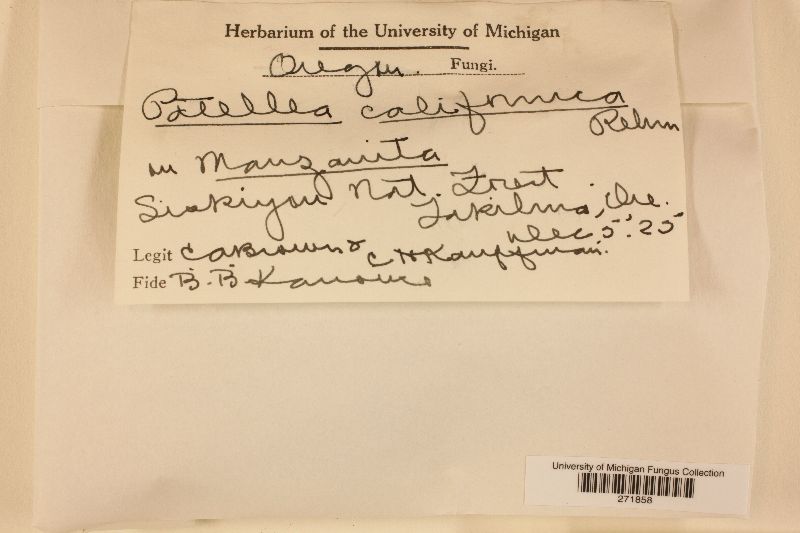 Herbarium of the University of Michigan
Oregon. Fungi.
Patellea californica
Rehm
on Manzanita
Siskiyou Nat. Forest
Takilma, Ore.
Dec 5. '25
Legit CA Brown & C H Kauffman.
Fide B. B. Kanouse
University of Michigan Fungus Collection
271858